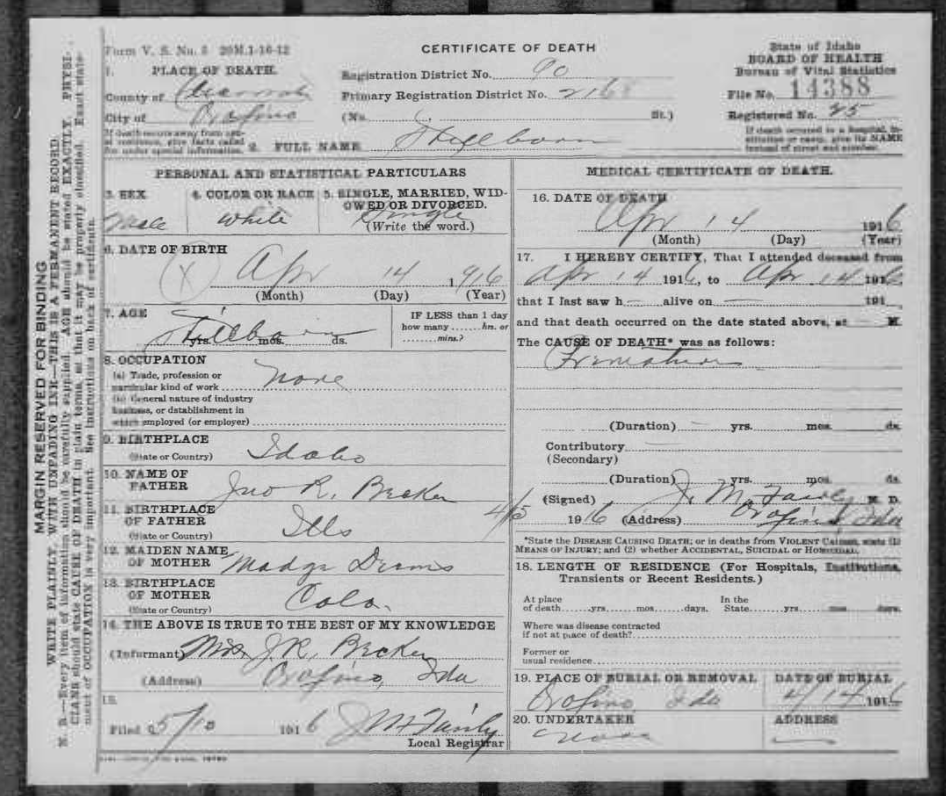 MARGIN RESERVED FOR BINDING
WRITE PLAINLY, WITH UNFADING INK—THIS IS A PERMANENT RECORD.
N. B.—Every item of information should be carefully supplied. AGE should be stated EXACTLY. PHYSI-
CIANS should state CAUSE OF DEATH in plain terms, so that it may be properly classified. Exact state-
ment of OCCUPATION is very important. See instructions on back of certificate.
Form V. S. No. 5 20M.1-16-12
CERTIFICATE OF DEATH
State of Idaho
BOARD OF HEALTH
Bureau of Vital Statistics
File No. 14388
Registered No. 25
If death occurred in a hospital, in-
stitution or camp, give its NAME
instead of street and number.
1. PLACE OF DEATH.
County of
City of Orofino
If death occurs away from usu-
al residence, give facts called
for under special information.
Registration District No. 90
Primary Registration District No. 2168
(No. St.)
2. FULL NAME Stillborn
PERSONAL AND STATISTICAL PARTICULARS
3. SEX
Male
4. COLOR OR RACE
White
5. SINGLE, MARRIED, WID-
OWED OR DIVORCED.
Single
(Write the word.)
6. DATE OF BIRTH
(X) Apr 14 1916
(Month) (Day) (Year)
7. AGE
Stillborn
yrs. mos. ds.
IF LESS than 1 day
how many ...... hrs. or
...... mins.?
8. OCCUPATION
(a) Trade, profession or
particular kind of work None
(b) General nature of industry
business, or establishment in
which employed (or employer)
9. BIRTHPLACE
(State or Country) Idaho
10. NAME OF
FATHER Jno R. Becker
11. BIRTHPLACE
OF FATHER
(State or Country) Ills
12. MAIDEN NAME
OF MOTHER Madge
13. BIRTHPLACE
OF MOTHER
(State or Country) Colo.
14. THE ABOVE IS TRUE TO THE BEST OF MY KNOWLEDGE
(Informant) Mrs. J.R. Becker
(Address) Orofino, Ida
15.
Filed 5/10 1916 J M Fairly
Local Registrar
MEDICAL CERTIFICATE OF DEATH.
16. DATE OF DEATH
Apr 14 1916
(Month) (Day) (Year)
17. I HEREBY CERTIFY, That I attended deceased from
Apr 14 1916, to Apr 14 1916
that I last saw h— alive on — 191
and that death occurred on the date stated above, at — M.
The CAUSE OF DEATH* was as follows:
(Duration) yrs. mos. ds.
Contributory
(Secondary)
(Duration) yrs. mos. ds.
(Signed) J. M. Fairly M. D.
4/15 1916 (Address) Orofino Ida
*State the DISEASE CAUSING DEATH; or in deaths from VIOLENT CAUSES, state (1)
MEANS OF INJURY; and (2) whether ACCIDENTAL, SUICIDAL or HOMICIDAL.
18. LENGTH OF RESIDENCE (For Hospitals, Institutions,
Transients or Recent Residents.)
At place
of death....yrs.....mos.....days.
In the
State....yrs.....mos.....days.
Where was disease contracted
if not at place of death?
Former or
usual residence
19. PLACE OF BURIAL OR REMOVAL
Orofino Ida
DATE OF BURIAL
4/14 1916
20. UNDERTAKER
None
ADDRESS
—